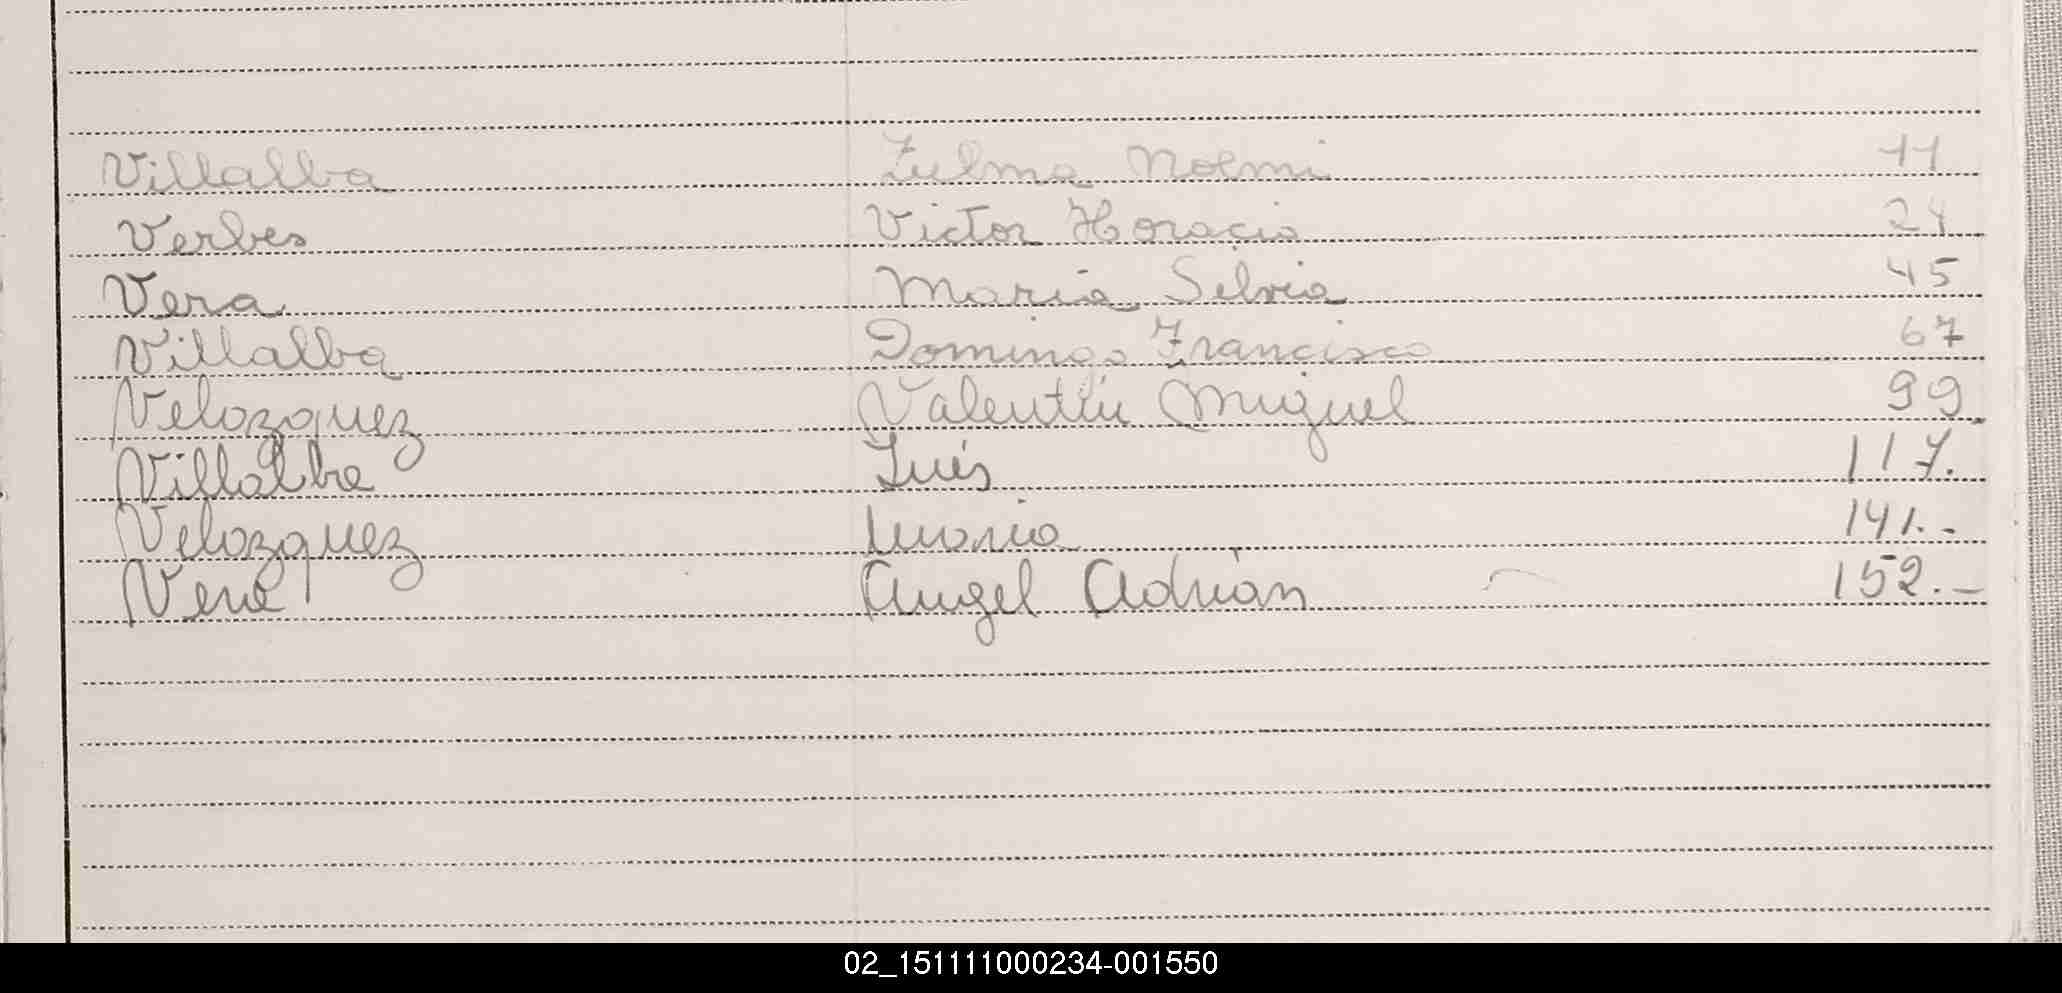 Villalba Zulma Noemi 11
Verbes Victor Horacio 24
Vera Maria Selvia 45
Villalba Domingo Francisco 67
Velozquez Valentín Miguel 99
Villalba Inés 117.
Velozquez Maria 141.-
Vera Angel Adrián 152.-
02_151111000234-001550